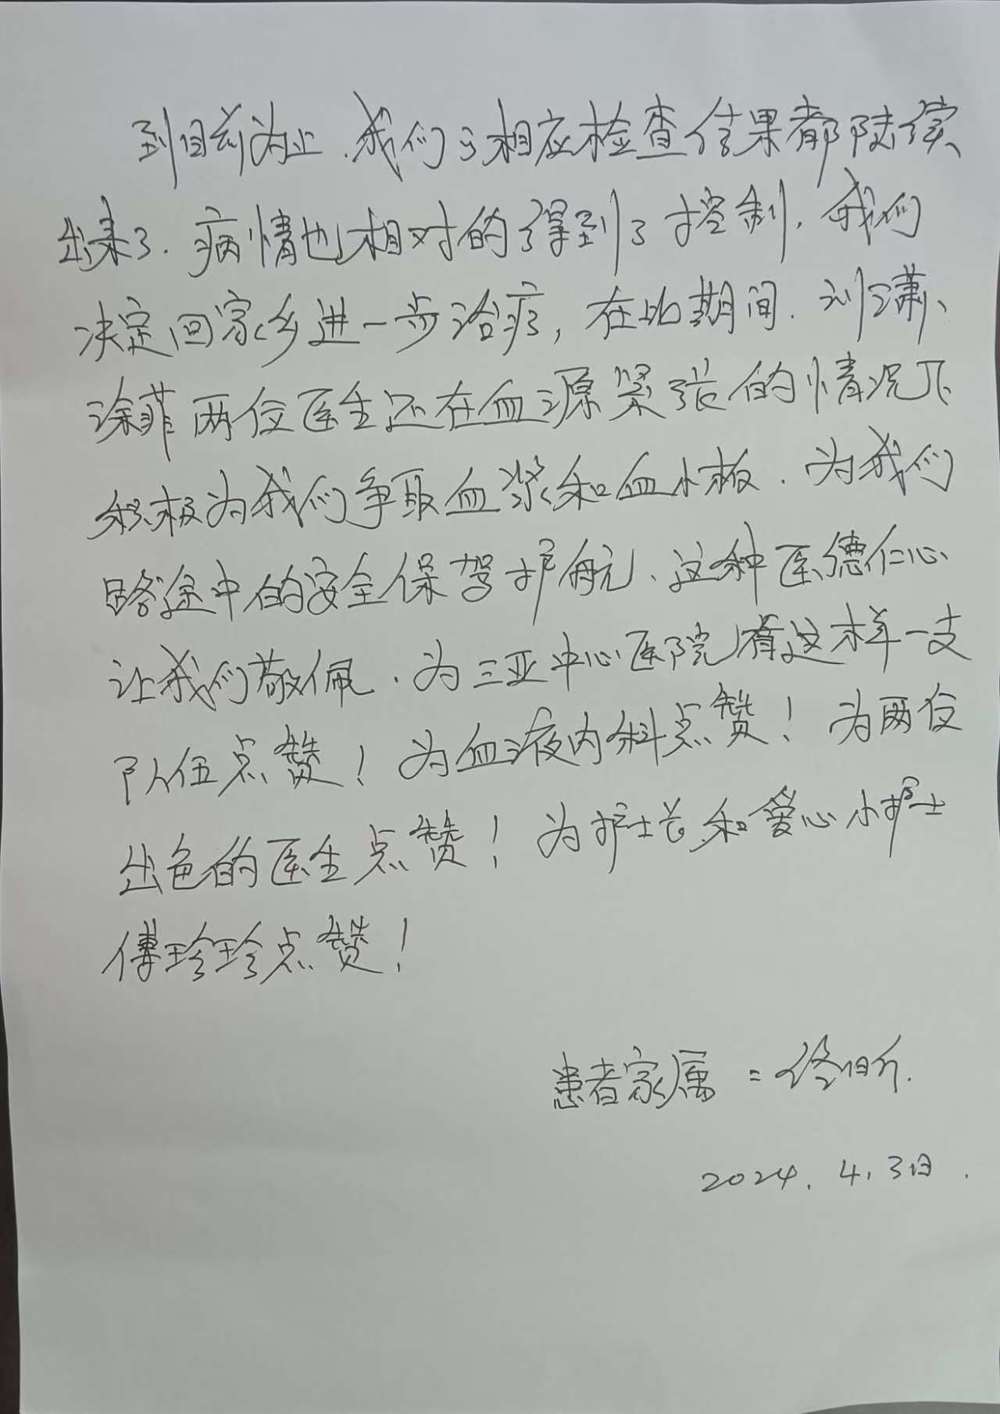 到目前为止,我们的相应检查结果都陆续
出来了.病情也相对的得到了控制,我们
决定回家乡进一步治疗,在此期间.刘潇、
涂菲两位医生还在血源紧张的情况下
积极为我们争取血浆和血小板.为我们
路途中的安全保驾护航、这种医德仁心
让我们敬佩.为三亚中心医院有这样一支
队伍点赞!为血液内科点赞!为两位
出色的医生点赞!为护士长和爱心小护士
傅珍珍点赞!
患者家属:
2024.4.3日.